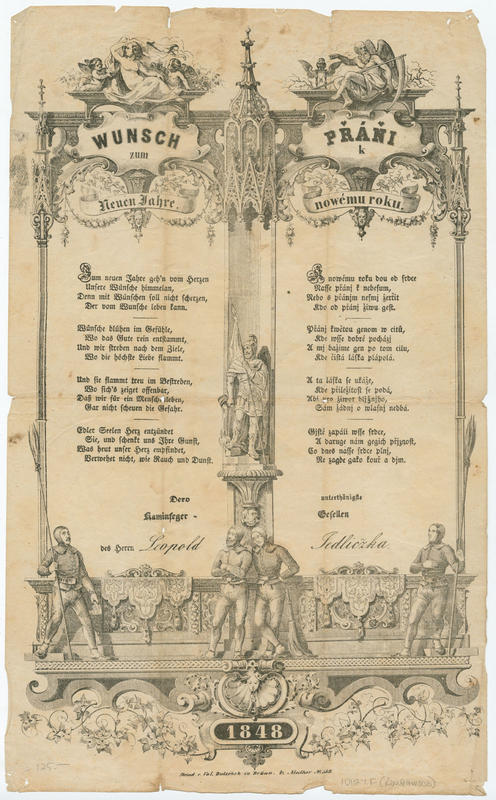 WUNSCH
zum
Neuen Jahre.
Zum neuen Jahre geh'n vom Herzen
Unsere Wünsche himmelan,
Denn mit Wünschen soll nicht scherzen,
Der vom Wunsche leben kann.
Wünsche blühen im Gefühle,
Wo das Gute rein entstammt,
Und wir streben nach dem Ziele,
Wo die höchste Liebe flammt.
Und sie flammt treu im Bestreben,
Wo sich's zeiget offenbar,
Daß wir für ein Menschenleben,
Gar nicht scheuen die Gefahr.
Edler Seelen Herz entzündet
Sie, und schenkt uns Ihre Gunst,
Was heut unser Herz empfindet,
Verwehet nicht, wie Rauch und Dunst.
PŘÁŇI
k
nowému roku.
K nowému roku dou od srdce
Nasse přánj k nebesum,
Nebo s přánjm nesmj žertit
Kdo od přánj žiwu gest.
Přánj kwětau genom w citu,
Kde wsse dobré pocházj
A mj dažime gen po tom cílu,
Kde čistá láska plápolá.
A ta láska se ukáže,
Kde přiležitost se podá,
Abi pro žiwot bližnjho,
Sám žádnj o wlasnj nedbá.
Gistě zapálí wsse srdce,
A daruge nám gegich přjznost,
Co dnes nasse srdce plnj,
Ne zagde gako kouř a djm.
Dero unterthänigste
Kaminfeger - Gesellen
des Herrn Leopold Jedliczka
1848